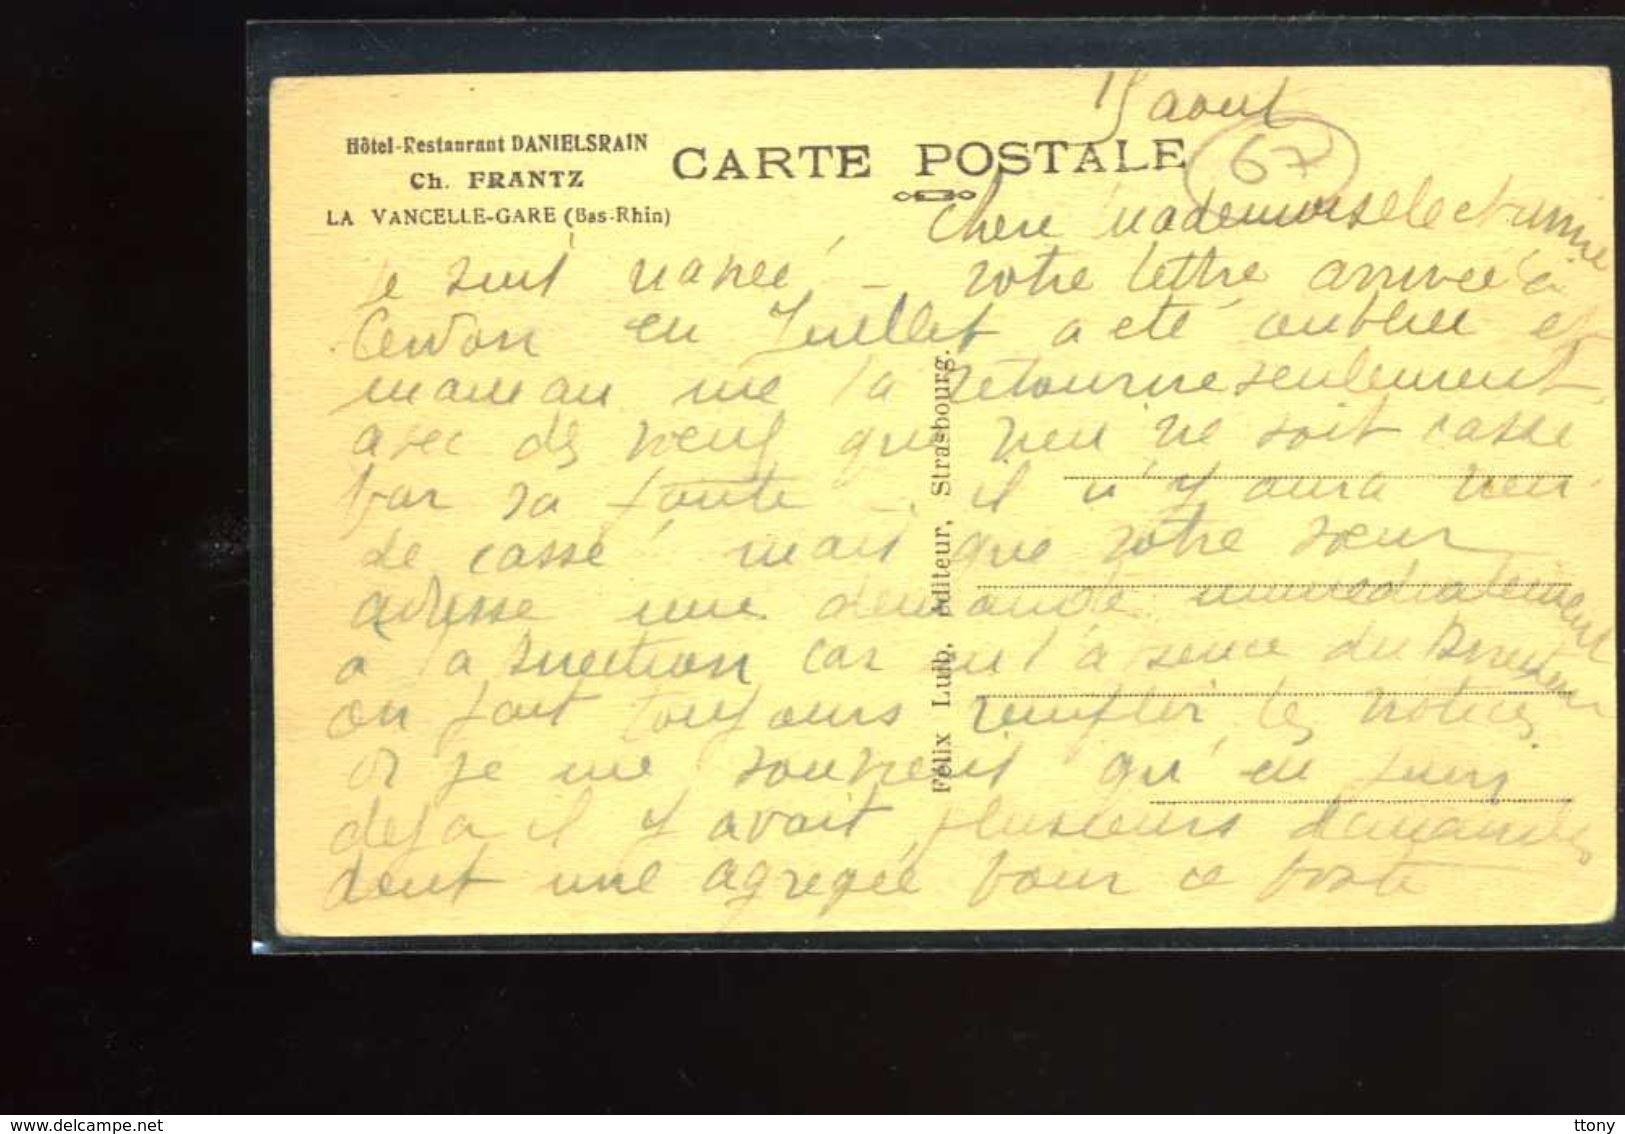 15 aout
Hôtel-Restaurant DANIELSRAIN
Ch. FRANTZ
LA VANCELLE-GARE (Bas-Rhin)
CARTE POSTALE
67
Chere Mademoiselle et amie
je suis navrée - votre lettre arrivée à
Cerdon en Juillet a été oubliée et
maman me la retourne seulement
avec des que rien ne soit cassé
par sa faute - il n'y aura rien
de cassé mais que votre sœur
adresse une demande immédiatement
a la Direction car en l'absence du Directeur
on fait toujours remplir les notices
or je me souviens qu'en juin
deja il y avait plusieurs demandes
dont une agregée pour ce poste
Félix Luib, éditeur, Strasbourg.
www.delcampe.net
ttony